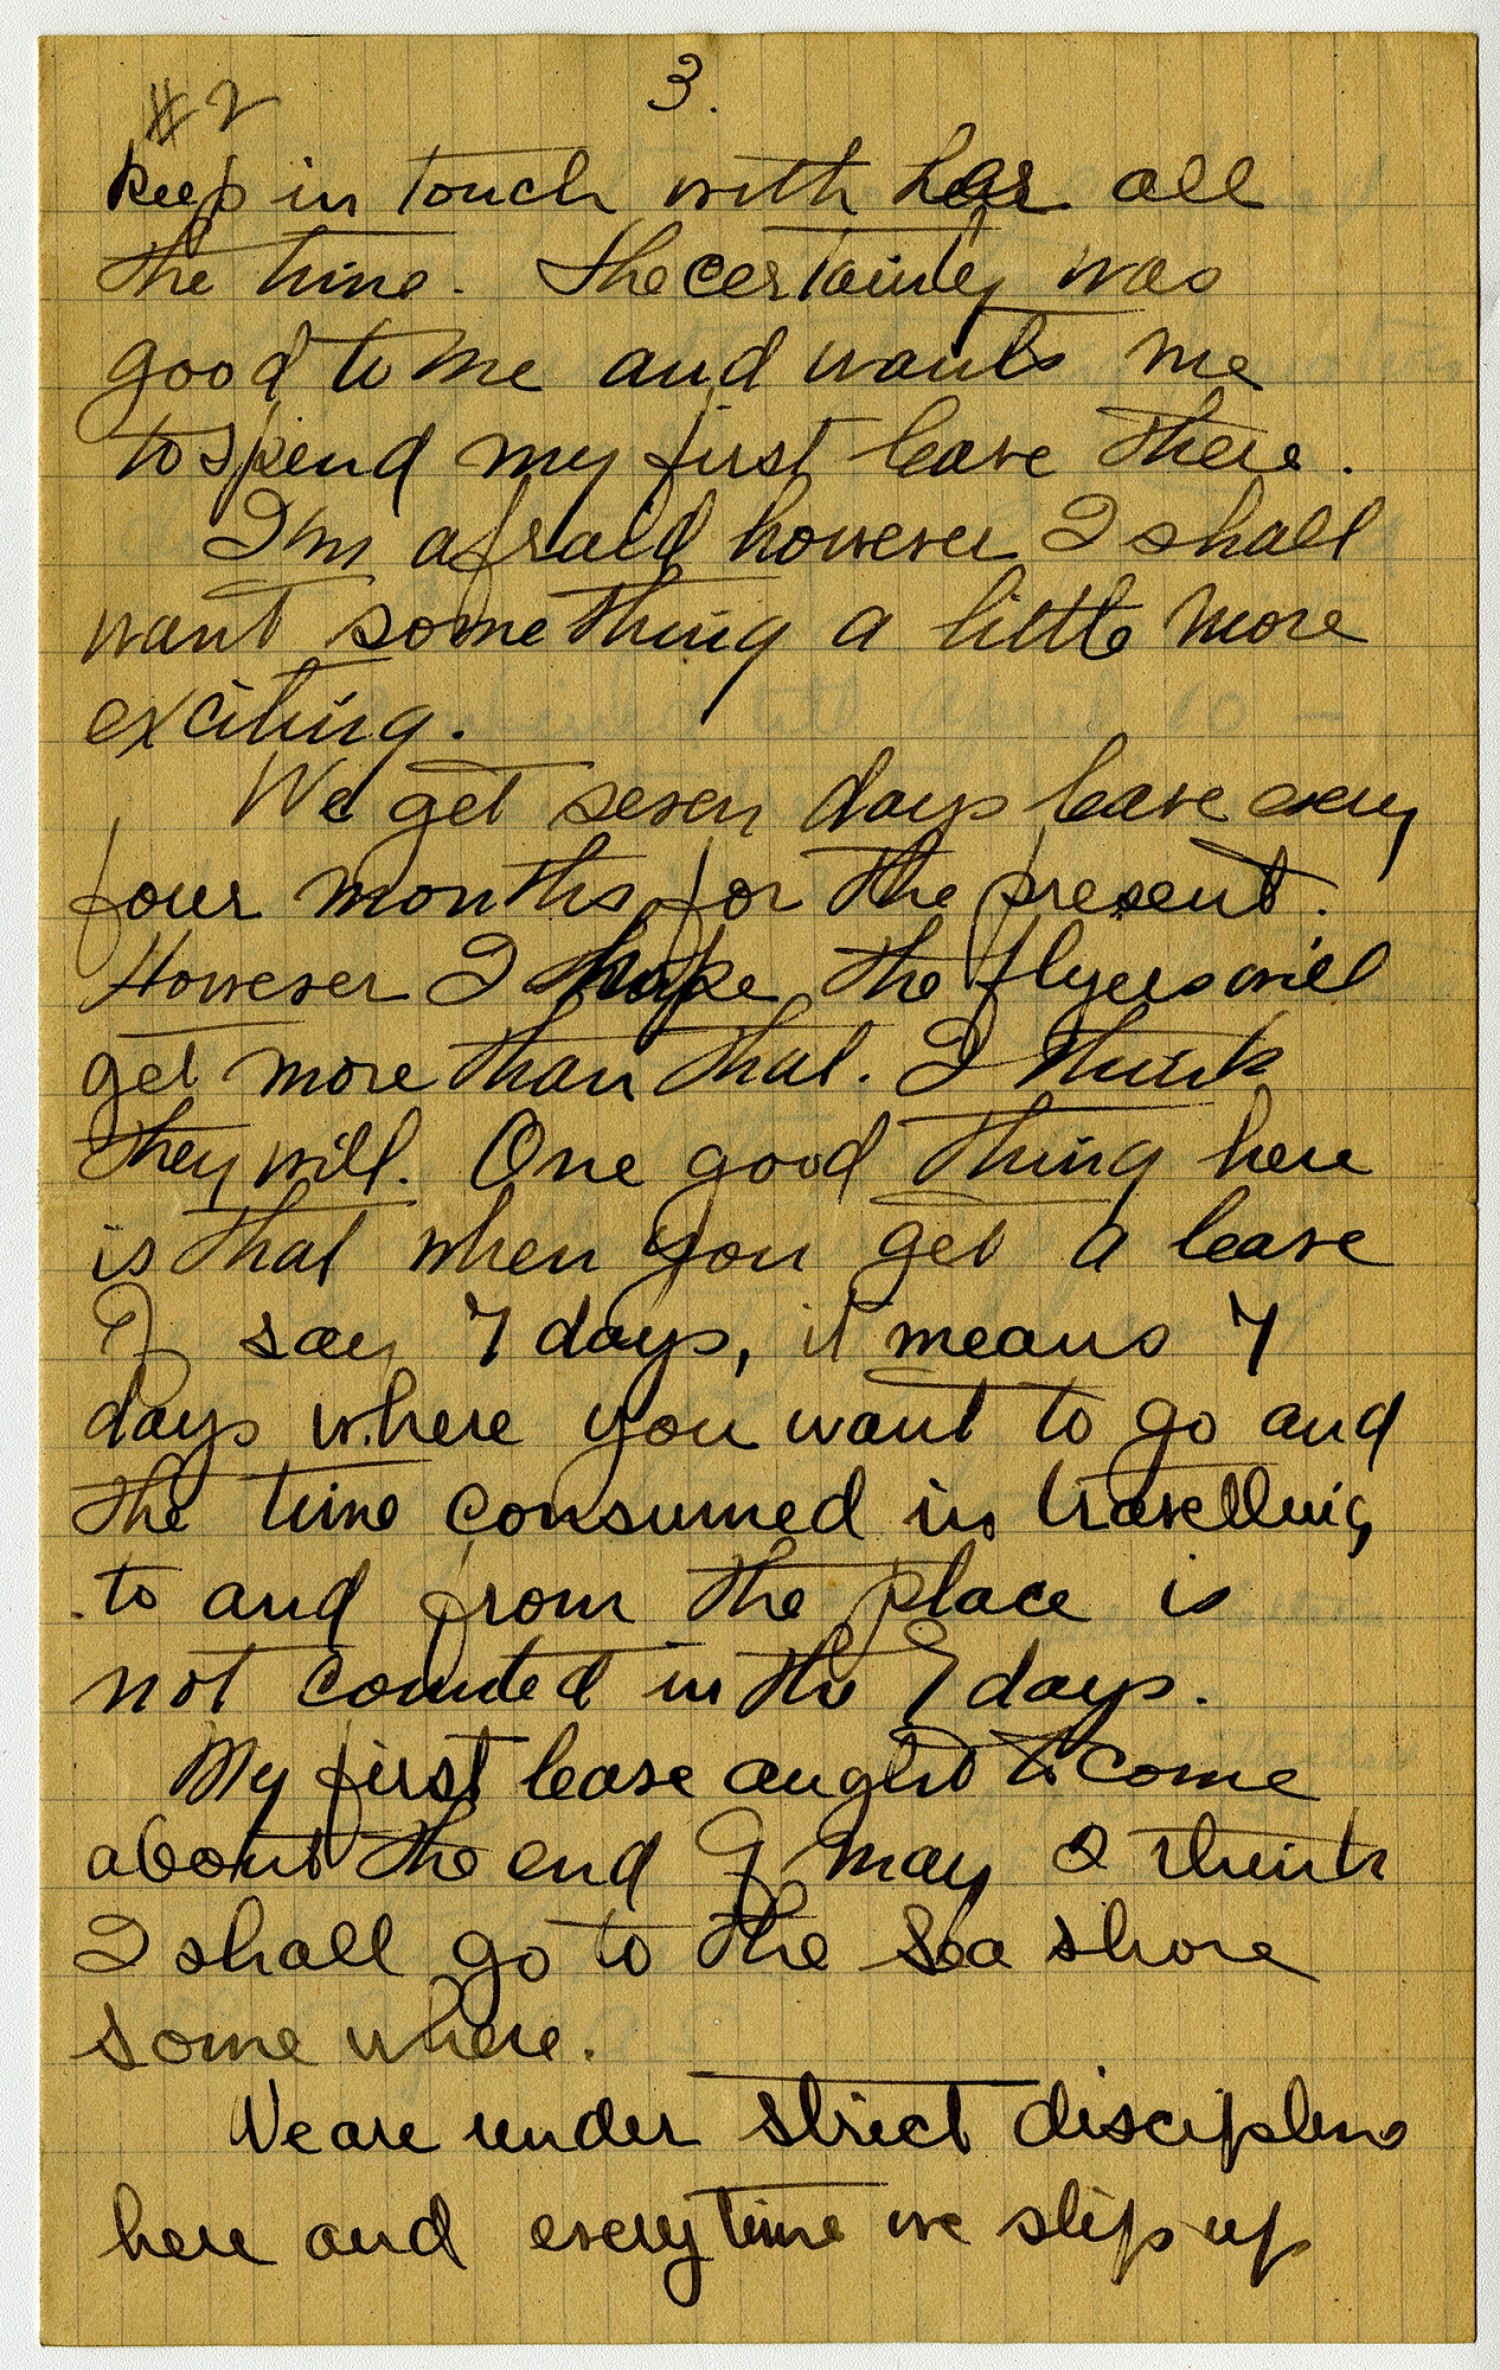 #2
3.
keep in touch with her all
the time. She certainly was
good to me and wants me
to spend my first leave there.
I'm afraid however I shall
want something a little more
exciting.
We get seven days leave every
four months for the present.
However I hope the flyers will
get more than that. I think
they will. One good thing here
is that when you get a leave
of say 7 days, it means 7
days where you want to go and
the time consumed in travelling
to and from the place is
not counted in the 7 days.
My first leave aught to come
about the end of May I think
I shall go to the sea shore
some where.
We are under strict discipline
here and every time we slip up